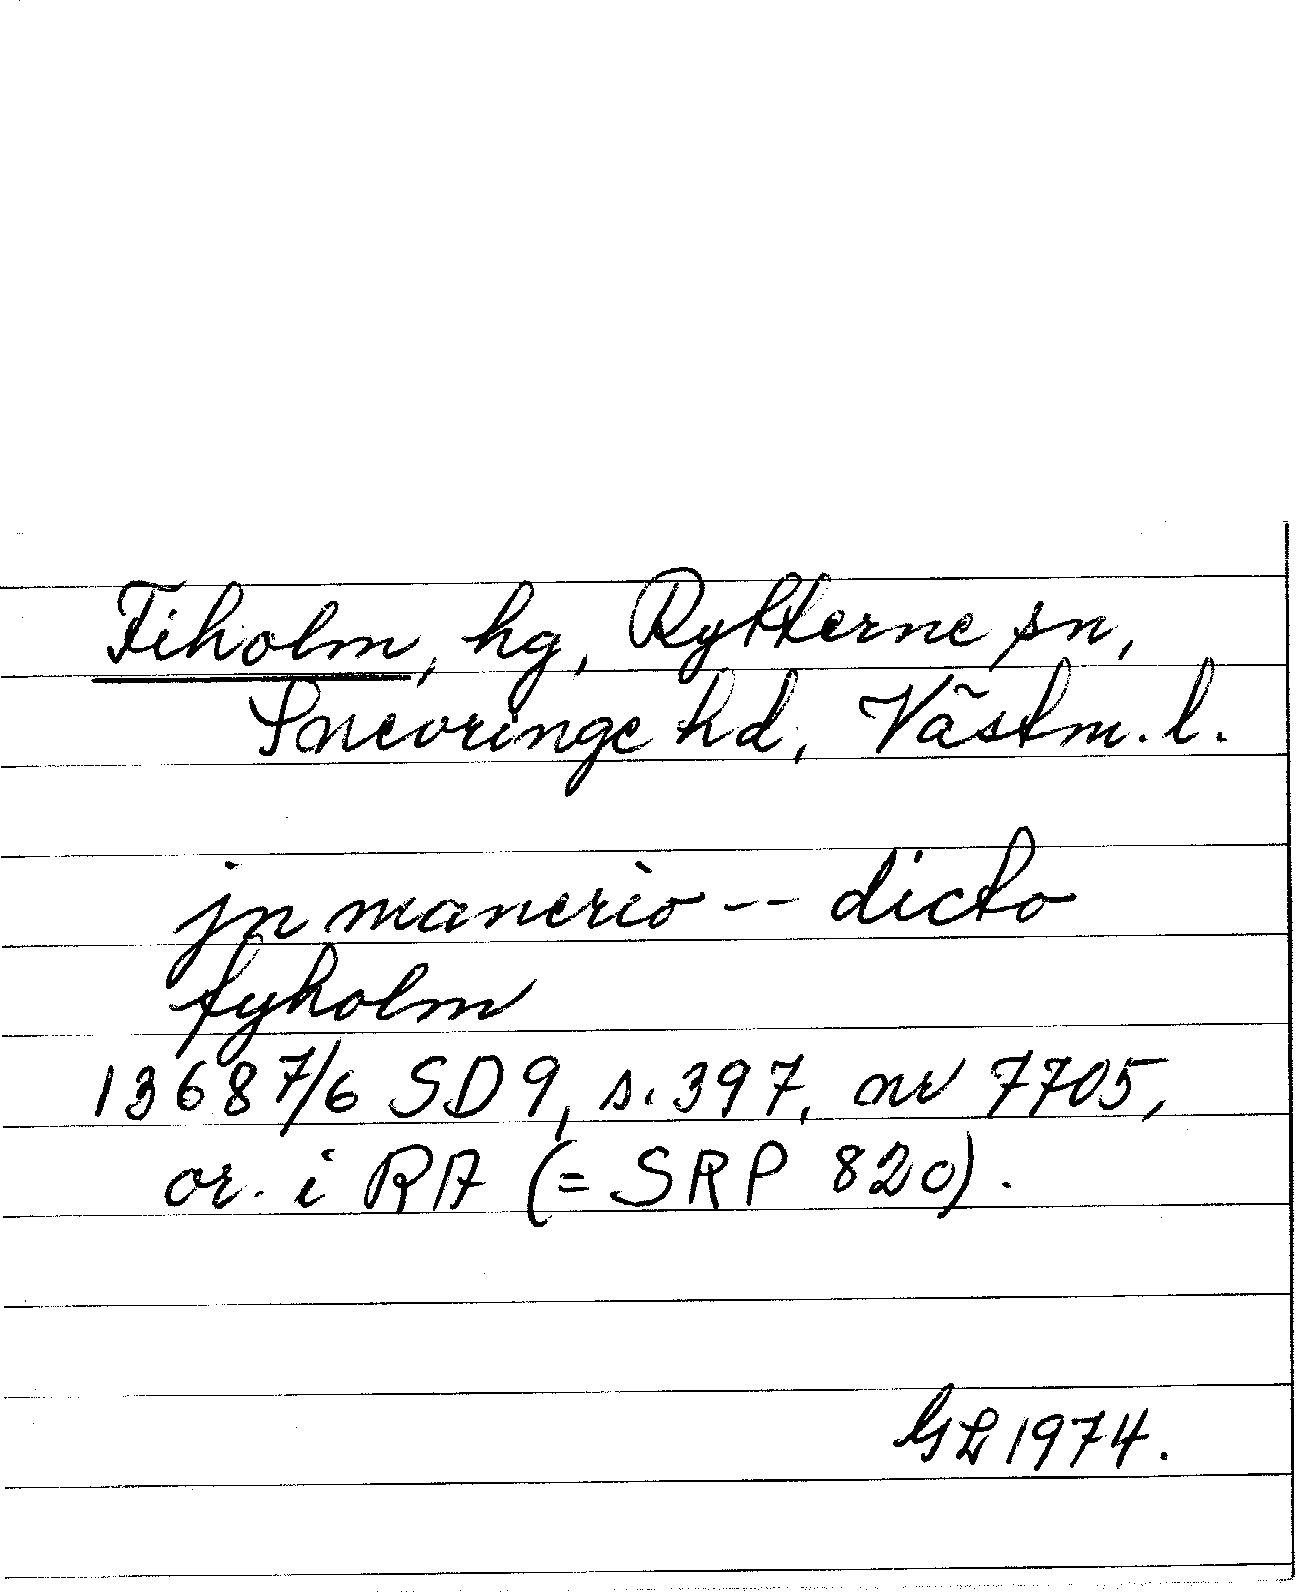 Fiholm, hg, Rytterne sn,
Snevringe hd, Västm. l.
jn manerio -- dicto
fyholm
1368 7/6 SD 9, s. 397, nr 7705,
or. i RA (= SRP 820).
GL 1974.